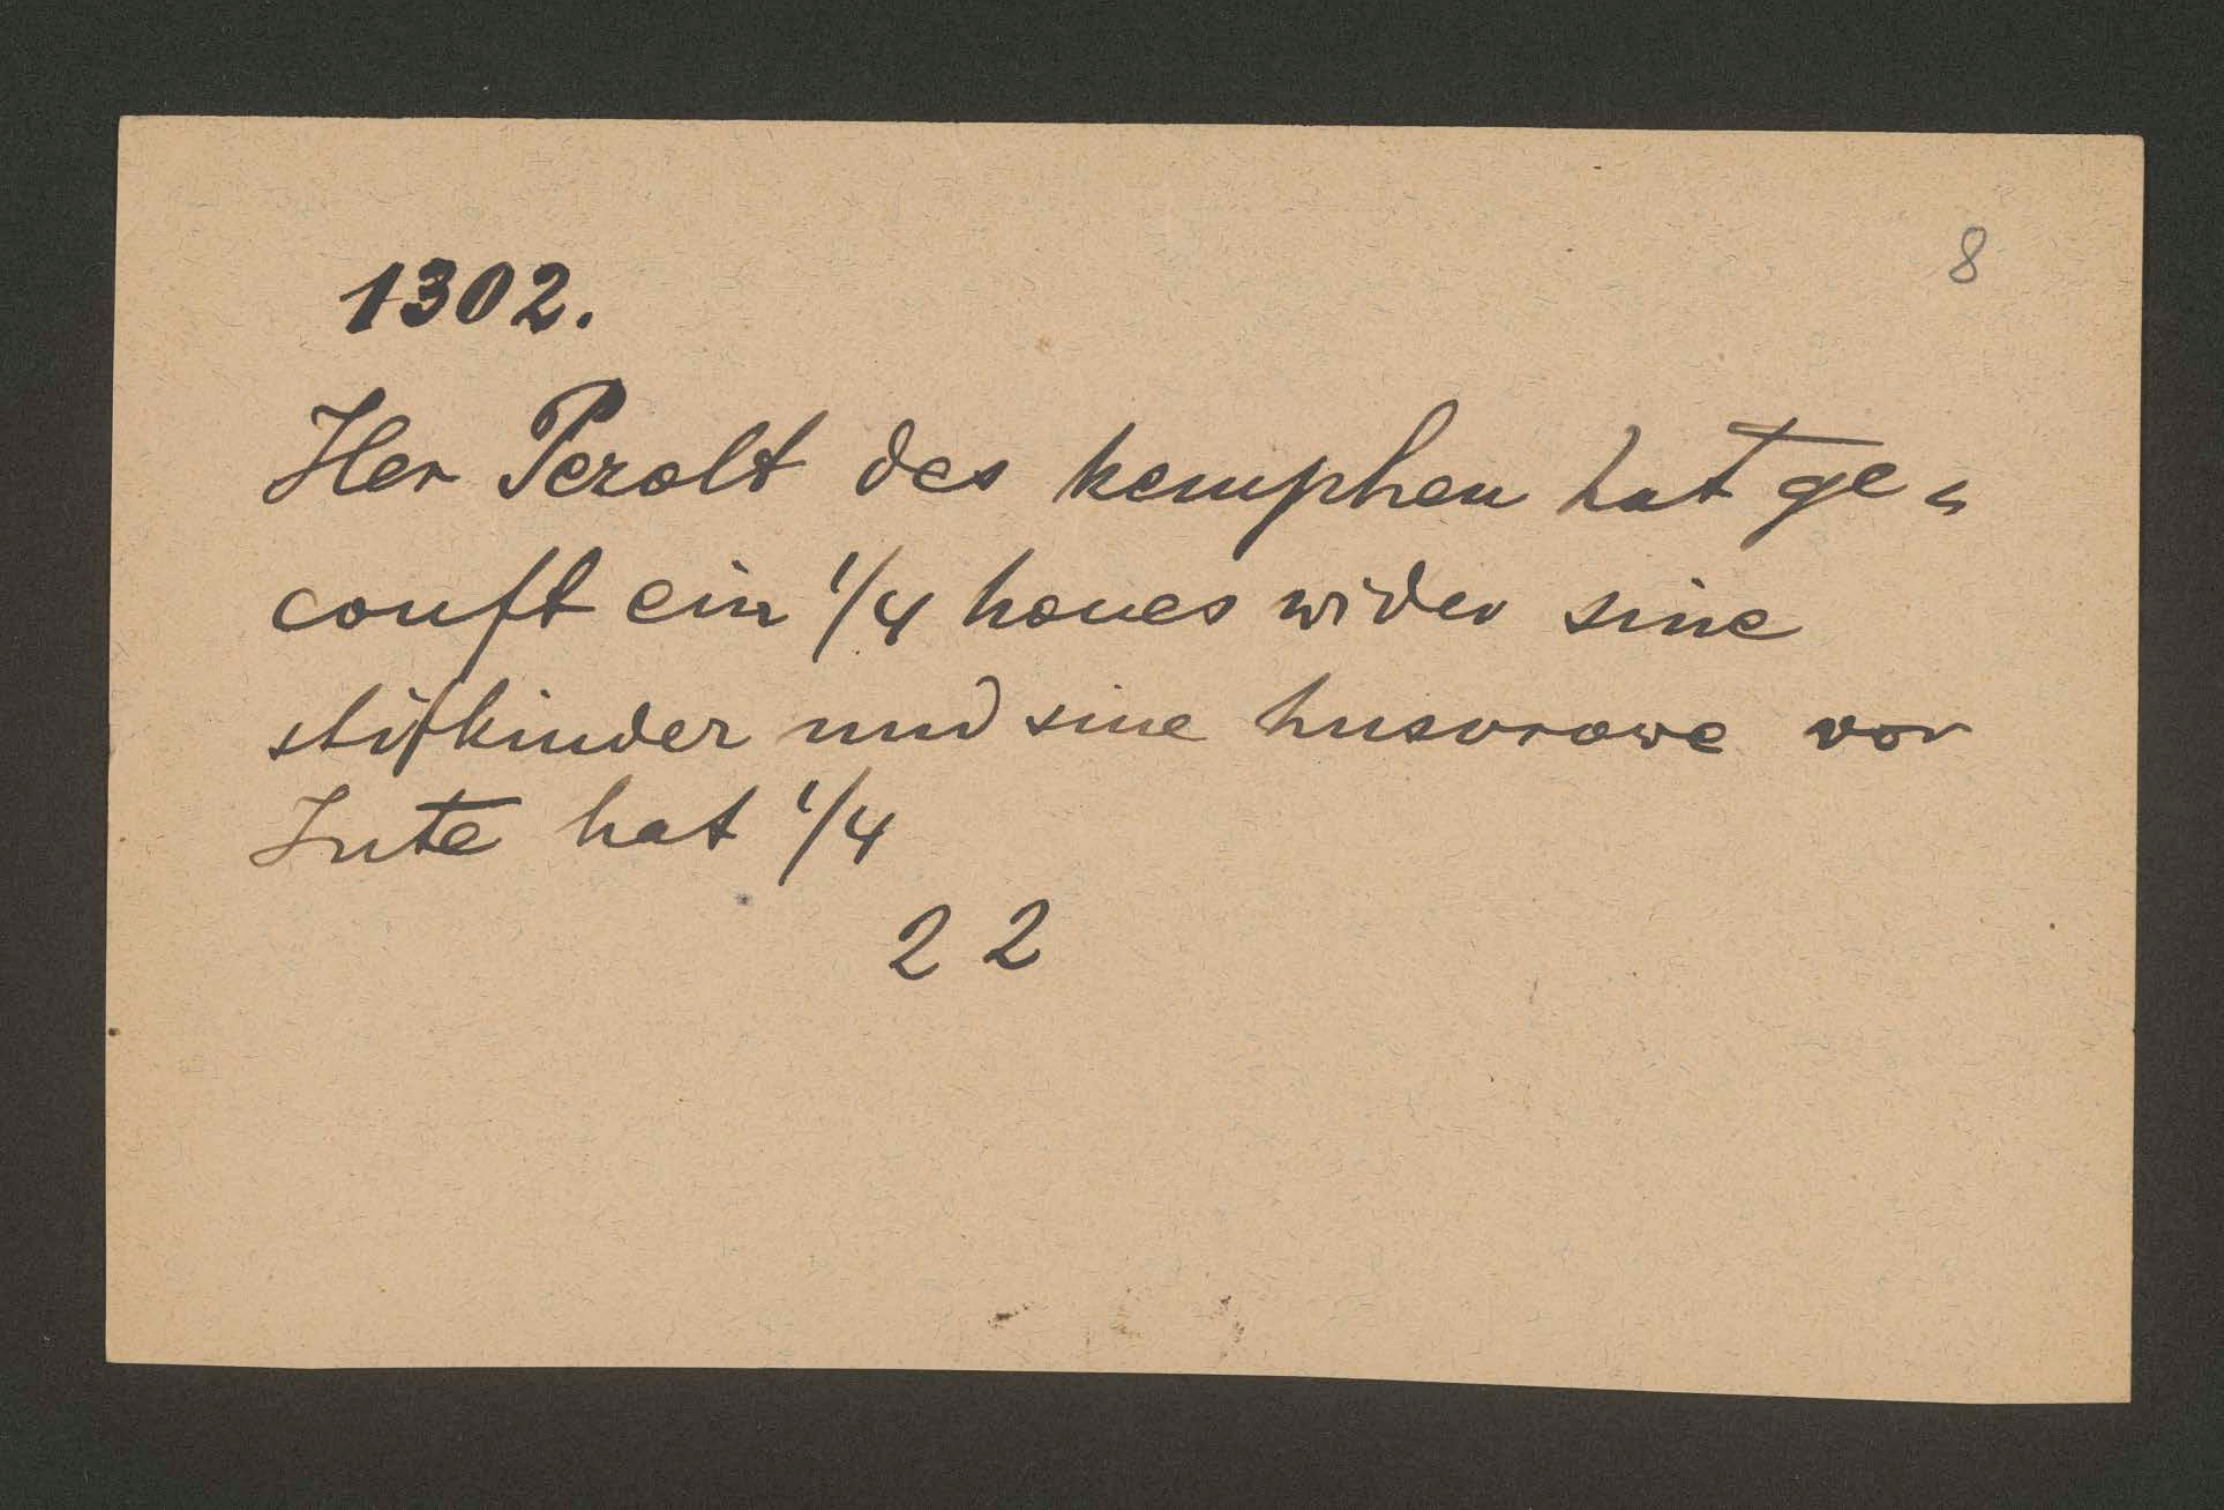 8
1302.
Her Perolt des kemphen hat ge=
couft ein 1/4 houes wider sine
stifkinder und sine husvrowe vor
Jute hat 1/4
2 2